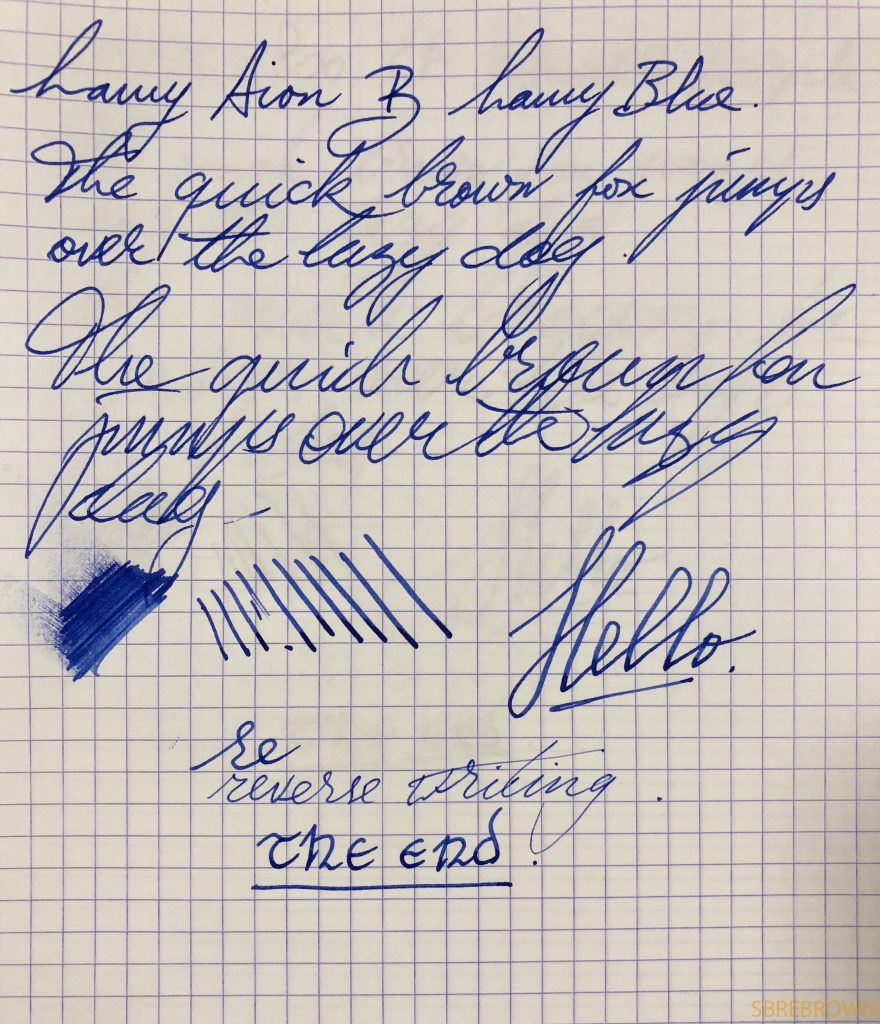 Lamy Aion B Lamy Blue.
The quick brown fox jumps
over the lazy dog.
The quick brown fox
jumps over the lazy
dog
Hello.
re
reverse writing.
THE END.
SBREBROWN